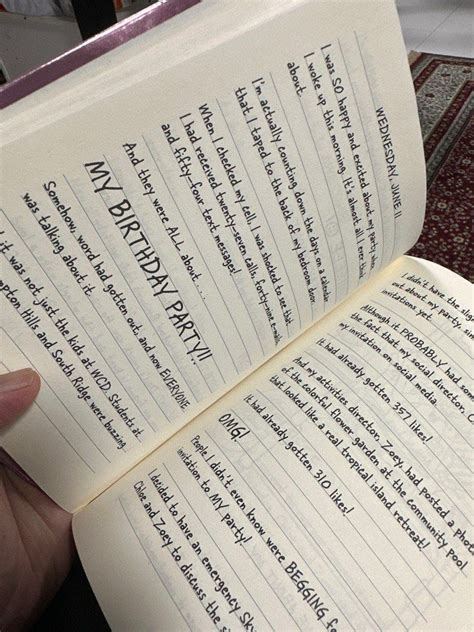 WEDNESDAY, JUNE 11
I was SO happy and excited about my party when
I woke up this morning. It's almost all I ever think
about.
I'm actually counting down the days on a calendar
that I taped to the back of my bedroom door.
When I checked my cell, I was shocked to see that
I had received twenty-seven calls, forty-nine e-mails,
and fifty-four text messages!
And they were ALL about . . .
MY BIRTHDAY PARTY!!
Somehow, word had gotten out, and now EVERYONE
was talking about it.
it was not just the kids at WCD. Students at
Hills and South Ridge were buzzing
I didn't have the
out about my party,
invitations yet.
Although it PROBABLY had
the fact that my social director,
my invitation on social media.
It had already gotten 357 likes!
And my activities director, Zoey, had posted a photo
of the colorful flower garden at the community pool
that looked like a real tropical island retreat!
It had already gotten 310 likes!
OMG!
People I didn't even know were BEGGING for
invitation to MY party!
I decided to have an emergency
Chloe and Zoey to discuss the